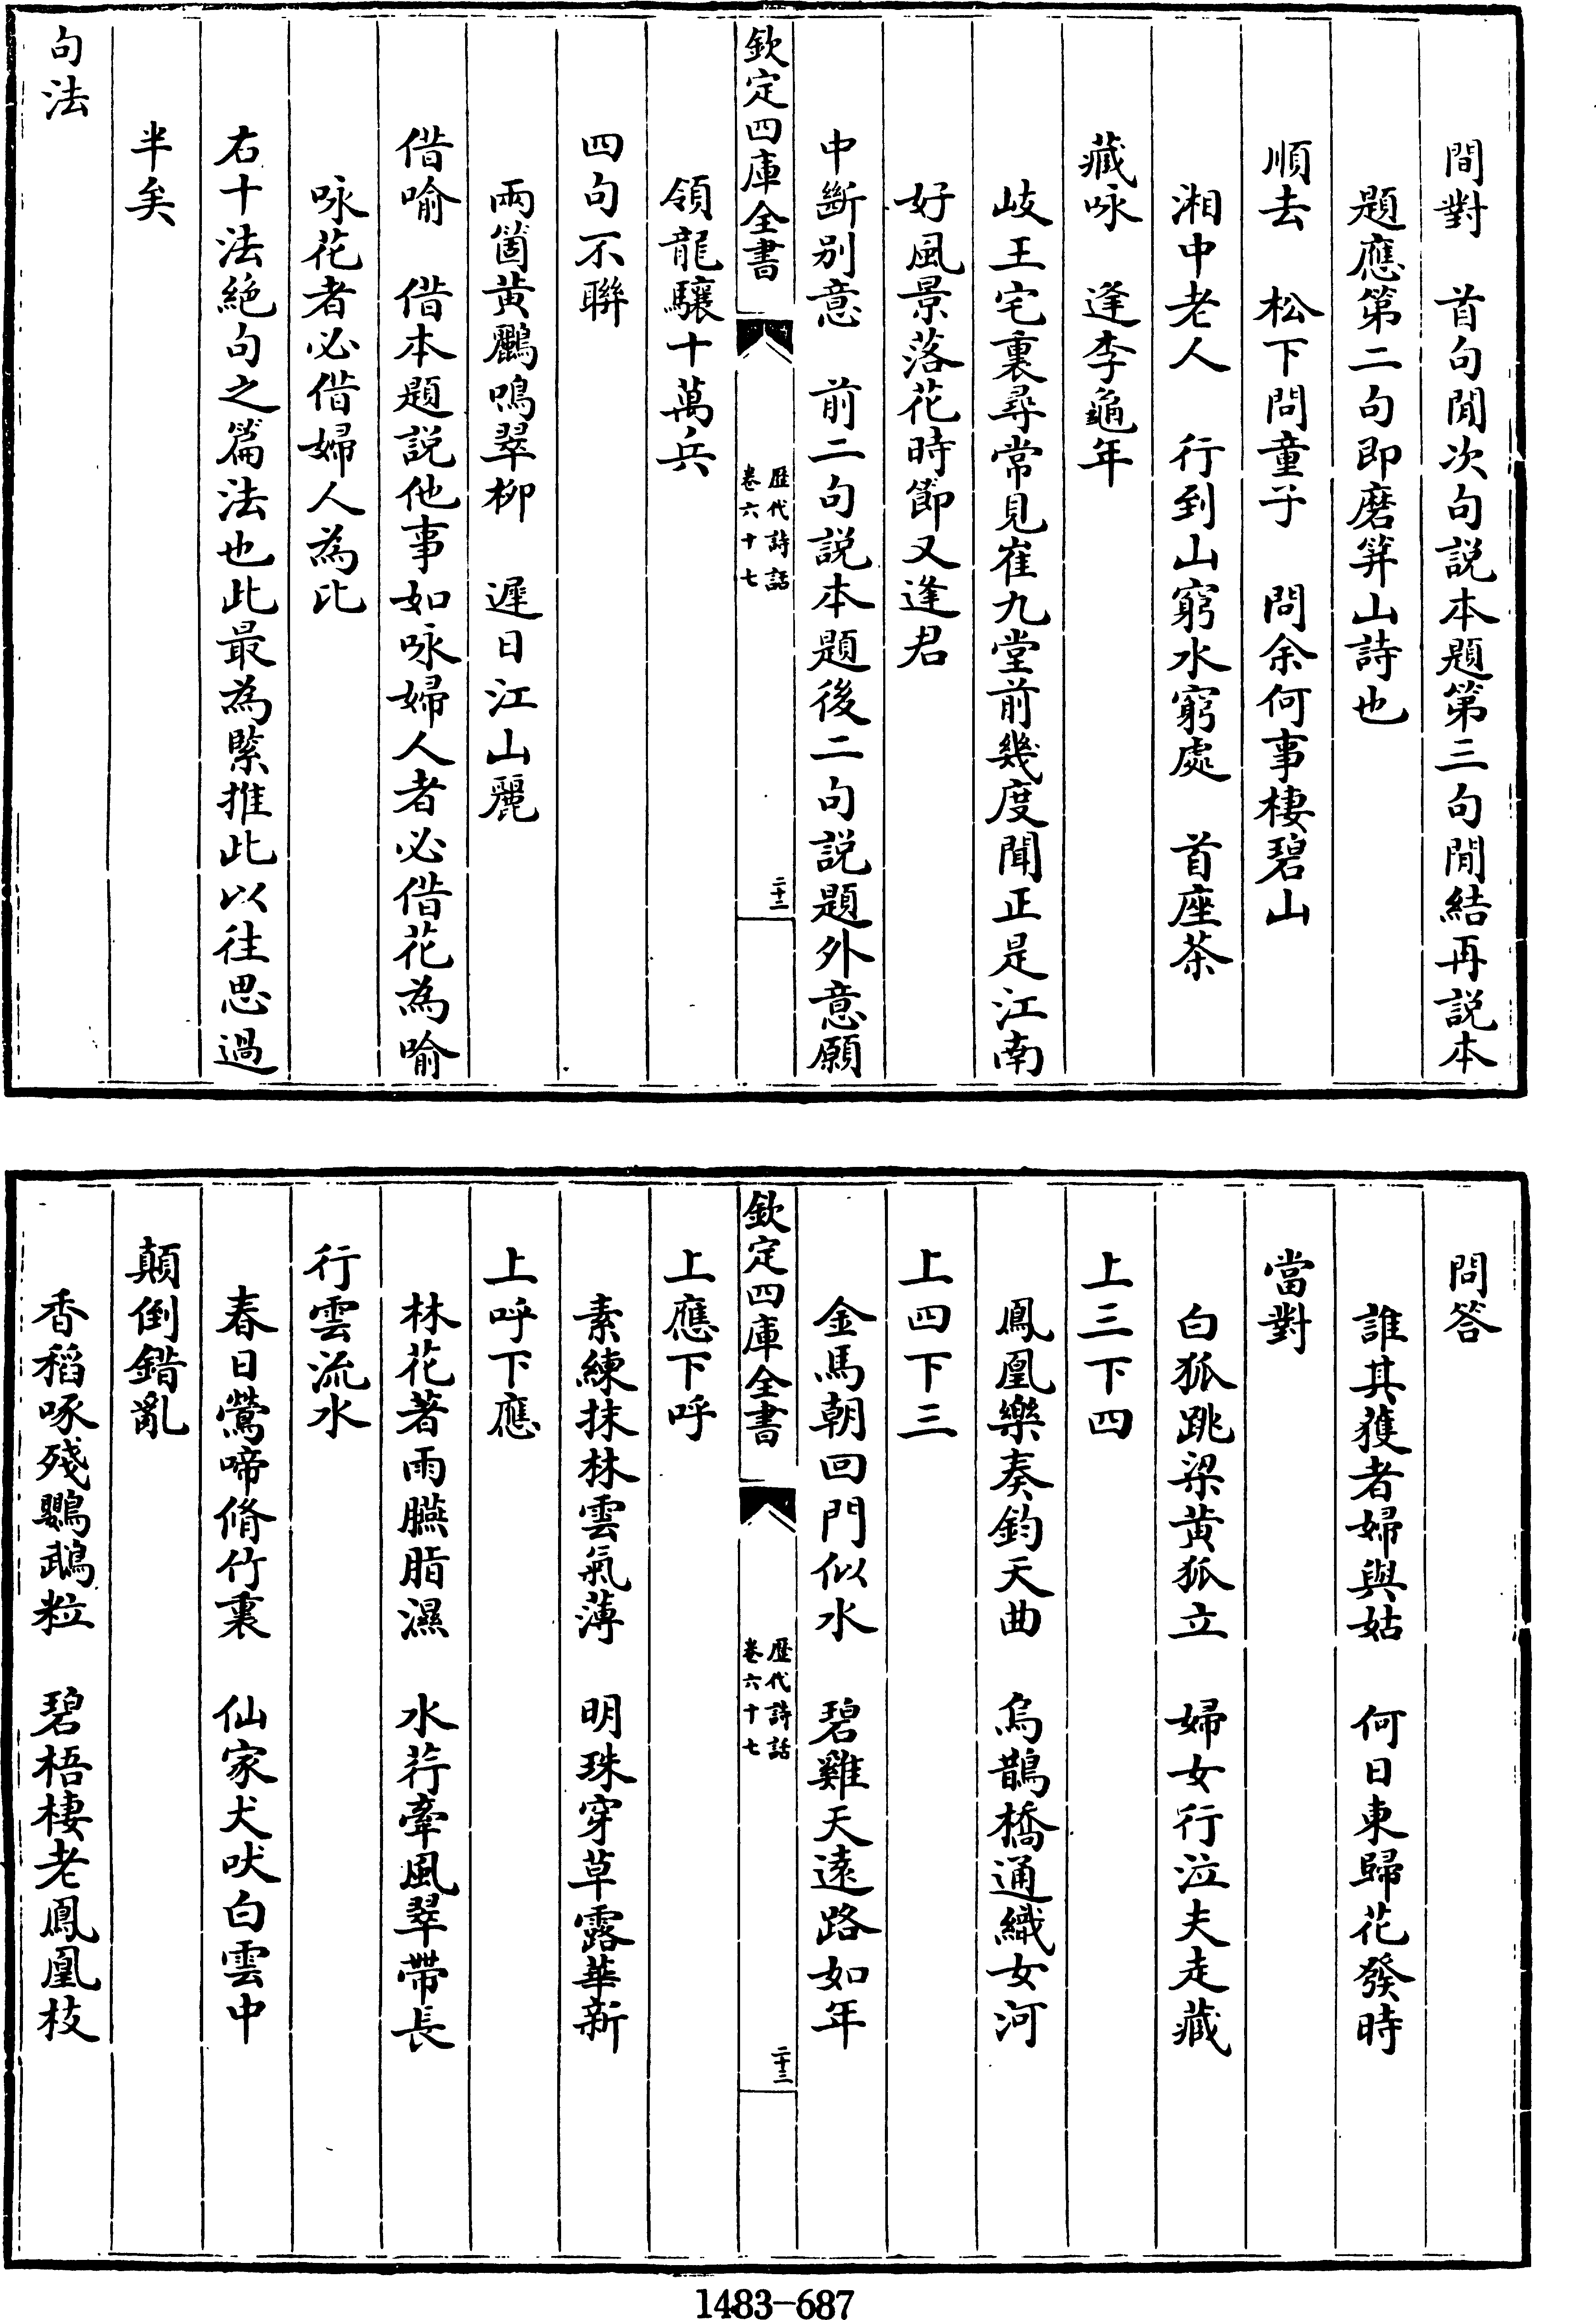 間對　首句閒次句説本題第三句閒結再説本
題應第二句即磨笄山詩也
順去　松下問童子　問余何事棲碧山
湘中老人　行到山窮水窮處　首座茶
藏咏　逢李龜年
岐王宅裏尋常見崔九堂前幾度聞正是江南
好風景落花時節又逢君
中斷别意　前二句説本題後二句説題外意願
欽定四庫全書
歴代詩話
卷六十七
二十二
領龍驤十萬兵
四句不聯
兩箇黄鸝鳴翠柳　遲日江山麗
借喻　借本題説他事如咏婦人者必借花為喻
咏花者必借婦人為比
右十法絶句之篇法也此最為緊推此以往思過
半矣
句法
問答
誰其獲者婦與姑　何日東歸花發時
當對
白狐跳梁黄狐立　婦女行泣夫走藏
上三下四
鳳凰樂奏鈞天曲　烏鵲橋通織女河
上四下三
金馬朝回門似水　碧雞天遠路如年
欽定四庫全書
歴代詩話
卷六十七
二十三
上應下呼
素練抹林雲氣薄　明珠穿草露華新
上呼下應
林花著雨臙脂濕　水荇牽風翠帶長
行雲流水
春日鶯啼脩竹裏　仙家犬吠白雲中
顛倒錯亂
香稻啄殘鸚鵡粒　碧梧棲老鳳凰枝
1483-687